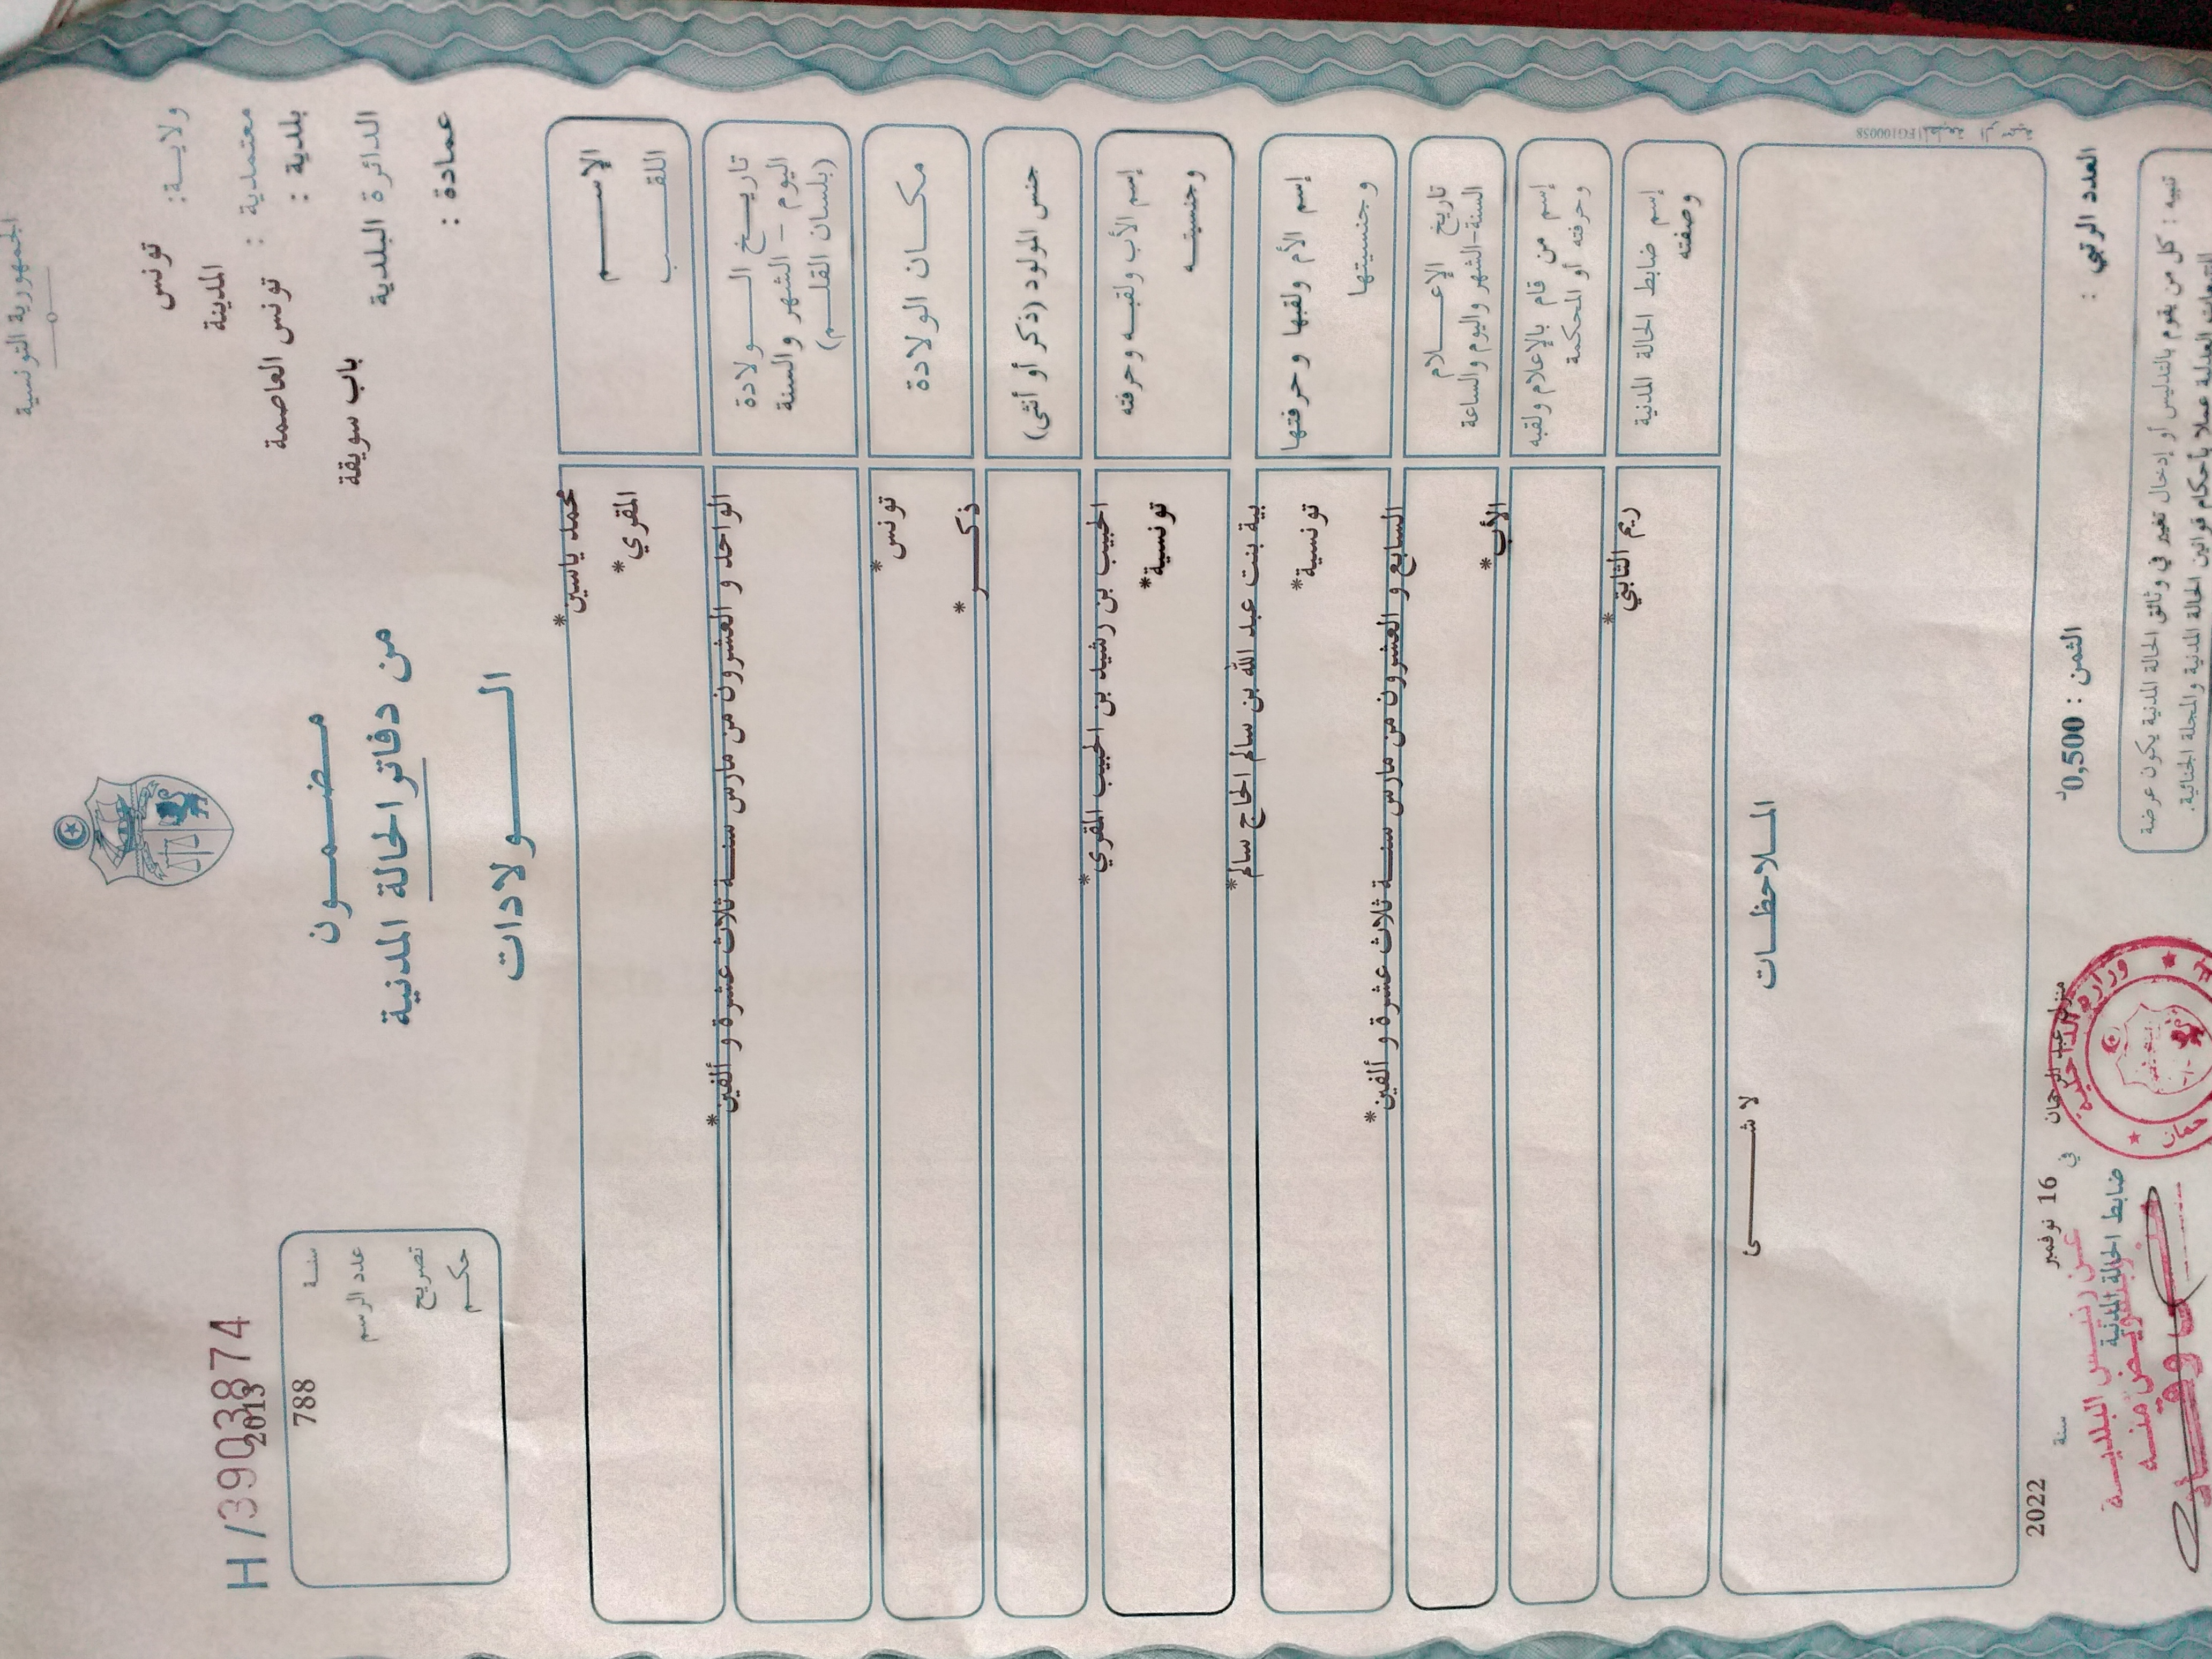 الجمهورية التونسية
ولايـة:
تونس
معتمدية :
المدينة
بلدية :
تونس العاصمة
الدائرة البلدية
باب سويقة
عمادة :
مـضـمـون
من دفاتر الحالة المدنية
الـولادات
H/39038874
2013
سنـة
788
عدد الرسم
تصريح
حكـم
الإســـم
محمد ياسين*
اللقــب
المقري*
تاريـخ الـولادة
اليوم – الشهر والسنة
(بلسان القلـم)
الواحد و العشرون من مارس سنـة ثلاث عشرة و ألفين*
مكـان الولادة
تونس*
جنس المولود (ذكر أو أنثى)
ذكـر*
إسم الأب ولقبـه وحرفته
وجنسيتـه
الحبيب بن رشيد بن الحبيب المقري*
تونسية*
إسم الأم ولقبها وحرفتها
وجنسيتها
بية بنت عبد الله بن سالم الحاج سالم*
تونسية*
تاريخ الإعـلام
السنة-الشهر واليوم والساعة
السابع و العشرون من مارس سنـة ثلاث عشرة و ألفين*
إسم من قام بالإعلام ولقبه
وحرفته أو المحكمة
الأب*
إسم ضابط الحالة المدنية
وصفته
ريم الثابتي*
المـلاحظـات
لا شـــى
FG100058
العدد الرتبي :
الثمن : 0,500د
منزل عبد الرحمان
في
16 نوفمبر
سنة
2022
ضابط الحالة المدنية
وزارة الداخلية
عـن رئيـس البلديـة
وبتفويـض منـه
تنبيه : كل من يقوم بالتدليس أو إدخال تغيير في وثائق الحالة المدنية يكون عرضة
العدلية عملا بأحكام قوانين الحالة المدنية والمجلة الجنائية.